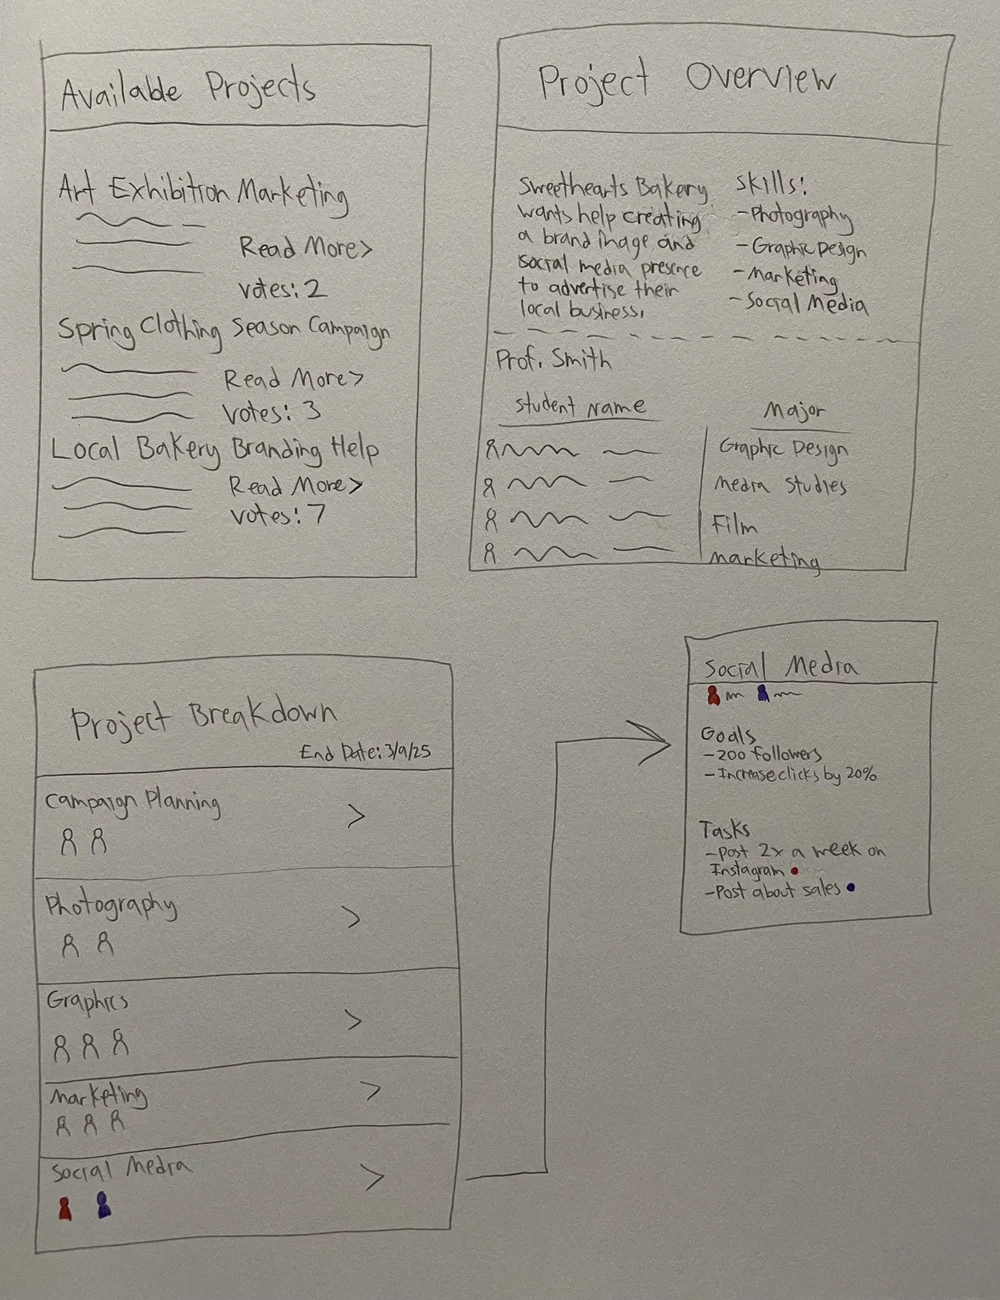 Available Projects
Art Exhibition Marketing
Read More>
votes: 2
Spring Clothing Season Campaign
Read More>
votes: 3
Local Bakery Branding Help
Read More>
votes: 7
Project Overview
Sweethearts Bakery
wants help creating
a brand image and
social media presence
to advertise their
local business.
Skills:
-Photography
-Graphic Design
-Marketing
-Social Media
Prof. Smith
Student Name
Major
Graphic Design
Media Studies
Film
Marketing
Project Breakdown
End Date: 3/9/25
Campaign Planning
>
Photography
>
Graphics
>
Marketing
>
Social Media
>
Social Media
Goals
-200 followers
-Increase clicks by 20%
Tasks
-Post 2x a week on
Instagram
-Post about sales